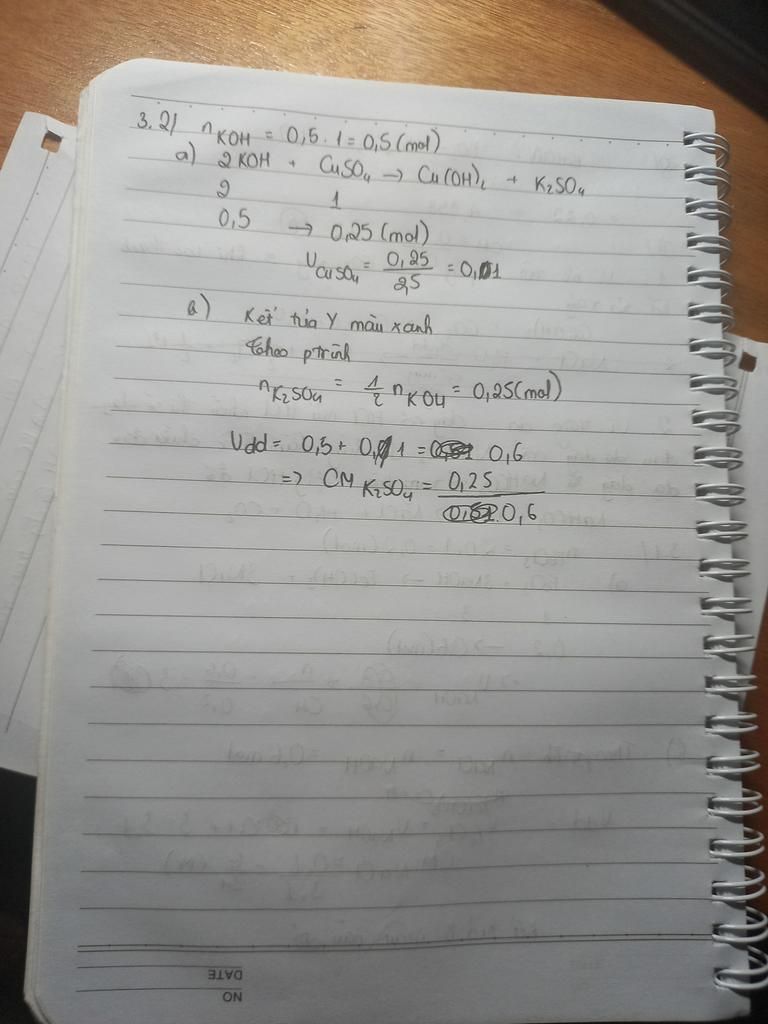 3.2/ nKOH = 0,5 . 1 = 0,5 (mol)
a) 2KOH + CuSO4 → Cu(OH)2 + K2SO4
2 1
0,5 → 0,25 (mol)
VCuSO4 = 0,25/2,5 = 0,1
a) Kết tủa Y màu xanh
theo ptrình
nK2SO4 = 1/2 nKOH = 0,25 (mol)
Vdd = 0,5 + 0,1 = 0,6
=> CM K2SO4 = 0,25/0,6
DATE
NO